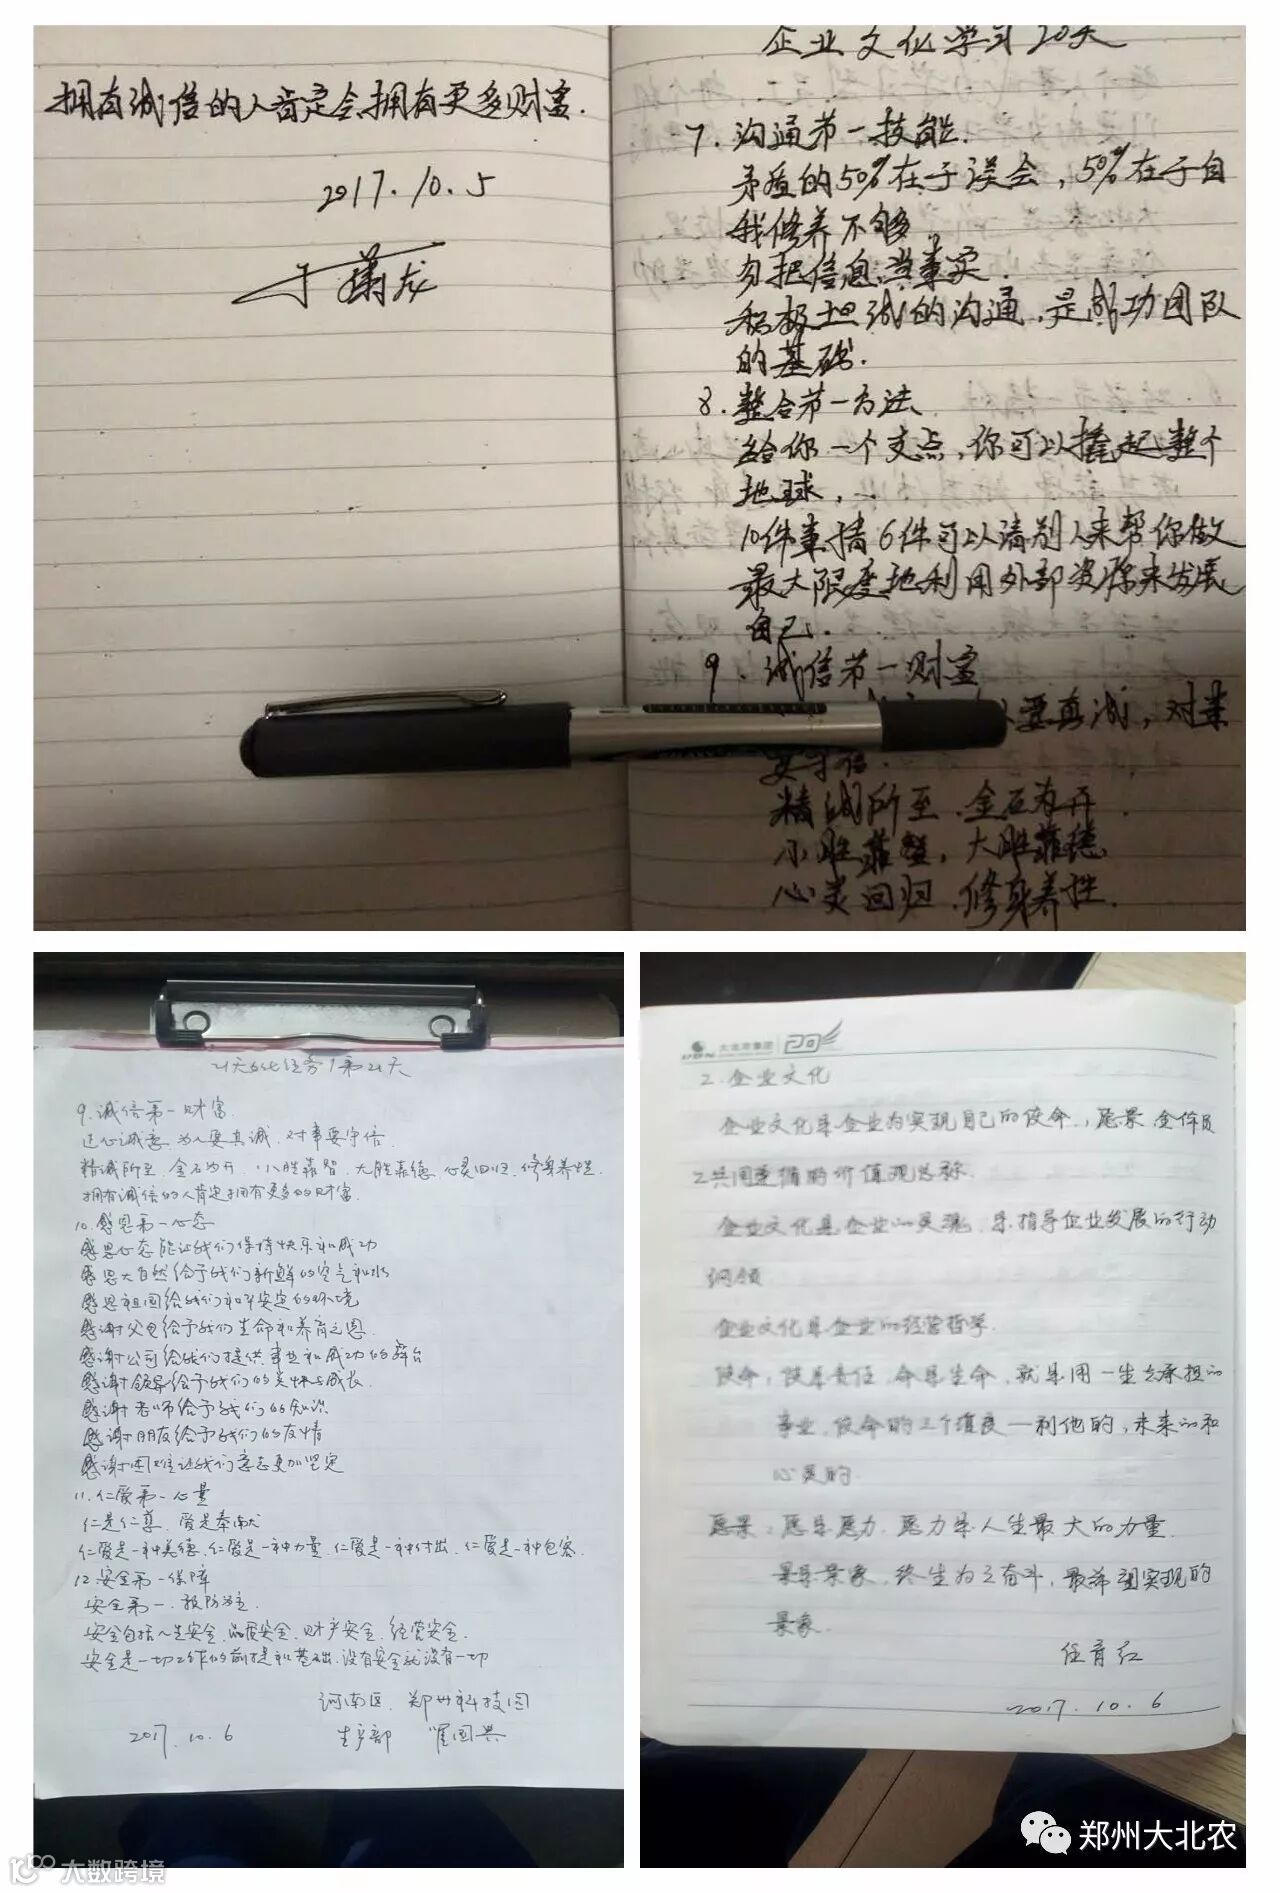 拥有诚信的人肯定会拥有更多财富.
2017.10.5
企业文化学习20天
7.沟通第一技能.
矛盾的50%在于误会,50%在于自
我修养不够.
勿把信息当事实.
积极坦诚的沟通,是成功团队
的基础.
8.整合第一方法.
给你一个支点,你可以撬起整个
地球,...
10件事情6件可以请别人来帮你做
最大限度地利用外部资源来发展
自己.
9.诚信第一财富
要真诚,对事
要守信.
精诚所至.金石为开.
小胜靠智,大胜靠德.
心灵回归.修身养性.
21天文化任务/第21天
9.诚信第一财富.
正心诚意.为人要真诚.对事要守信.
精诚所至.金石为开.小胜靠智.大胜靠德.心灵回归.修身养性.
拥有诚信的人肯定拥有更多的财富.
10.感恩第一心态
感恩心态能让我们保持快乐和成功
感恩大自然给予我们新鲜的空气和水
感恩祖国给我们和平安定的环境
感谢父母给予我们生命和养育之恩.
感谢公司给我们提供事业和成功的舞台
感谢领导给予我们的关怀与成长.
感谢老师给予我们的知识
感谢朋友给予我们的友情
感谢困难让我们意志更加坚定
11.仁爱第一心量
仁是仁尊.爱是奉献
仁爱是一种美德.仁爱是一种力量.仁爱是一种付出.仁爱是一种包容.
12.安全第一保障
安全第一.预防为主.
安全包括人生安全.品质安全.财产安全.经营安全.
安全是一切工作的前提和基础.没有安全就没有一切
河南区.郑州科技园
2017.10.6 生产部 翟国兴
大北农集团 20
2.企业文化
企业文化是企业为实现自己的使命,愿景 全体员
工共同遵循的价值观总称.
企业文化是企业的灵魂,是指导企业发展的行动
纲领
企业文化是企业的经营哲学.
使命:使是责任,命是生命,就是用一生去承担的
事业.使命的三个维度—利他的,未来的和
心灵的.
愿景:愿是愿力.愿力是人生最大的力量.
景是景象,终生为之奋斗,最希望实现的
景象.
任育红
2017.10.6
郑州大北农
大数跨境